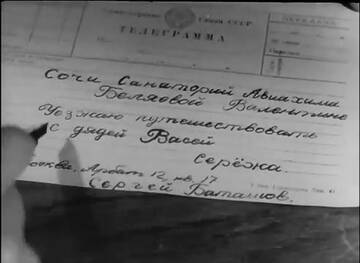 Связи СССР
ТЕЛЕГРАММА
Сочи Санаторий Авиахима
Беляевой Валентине
Уезжаю путешествовать
с дядей Васей
Серёжа.
Москва, Арбат 12, кв. 17
Сергей Баташов.